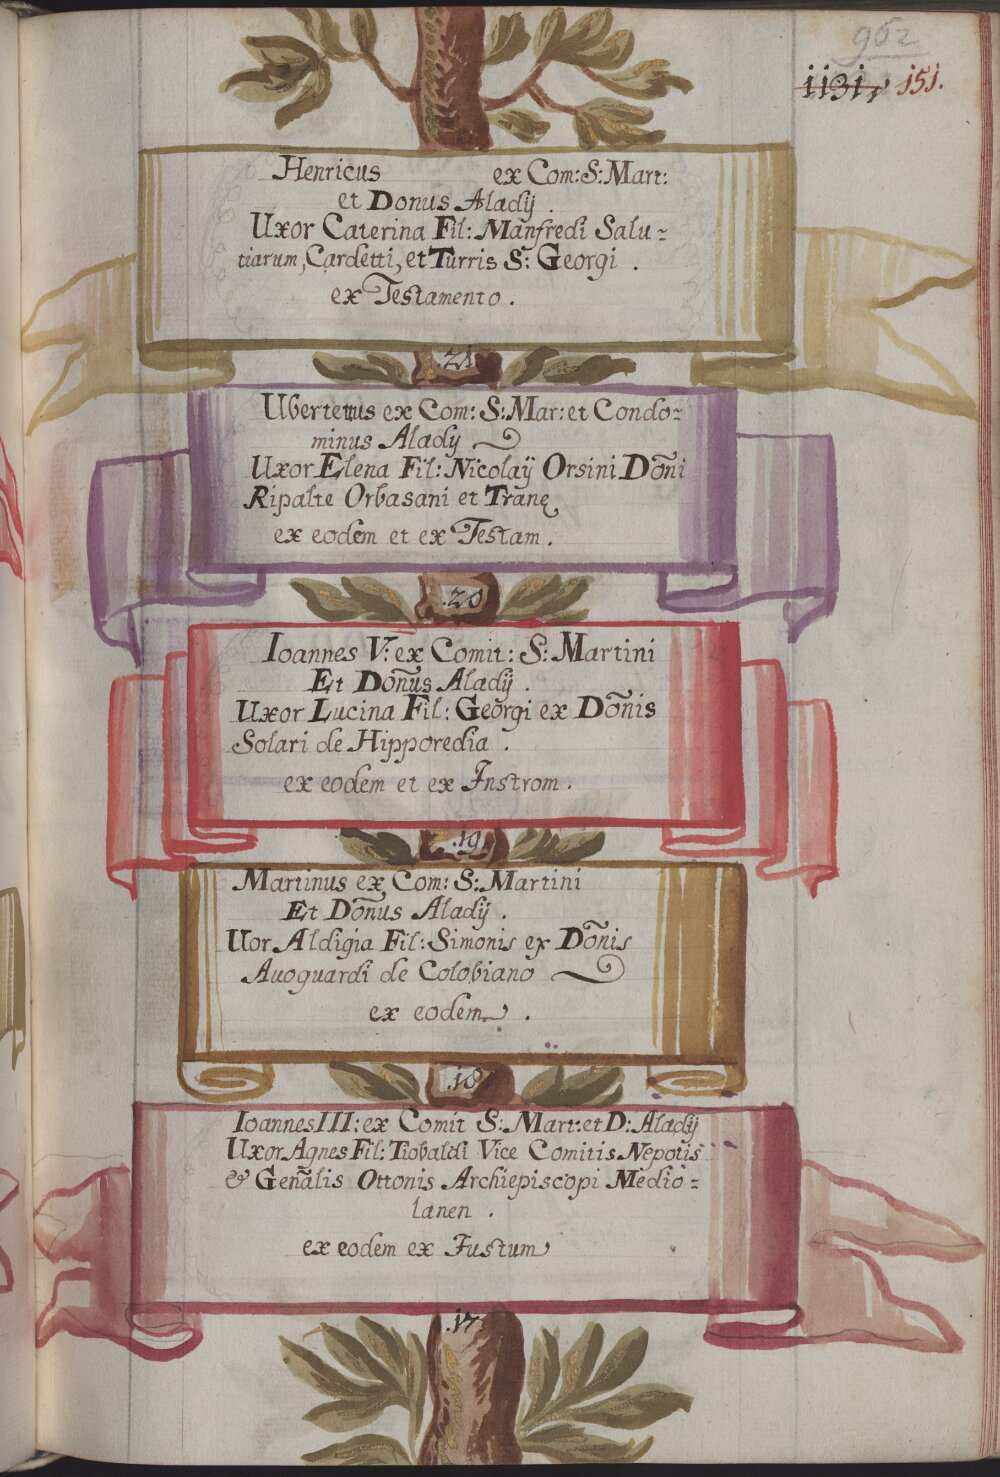 962
1131, 151.
Henricus ex Com: S: Mart:
et Donus Aladÿ.
Uxor Caterina Fil: Manfredi Salu-
tiarum, Cardetti, et Turris S: Georgi.
ex Testamento.
.21.
Ubertettus ex Com: S: Mar: et Condo-
minus Aladÿ
Uxor Elena Fil: Nicolaÿ Orsini Dom̃i
Ripalte Orbasani et Tranę
ex eodem et ex Testam.
.20.
Ioannes V: ex Comit: S: Martini
Et Doñus Aladÿ.
Uxor Lucina Fil: Georgi ex Doñis
Solari de Hipporedia.
ex eodem et ex Instrom.
.19.
Martinus ex Com: S: Martini
Et Doñus Aladÿ.
Uor Aldigia Fil: Simonis ex Doñis
Auoguardi de Colobiano
ex eodem.
.18.
Ioannes III: ex Comit S: Mart: et D: Aladÿ
Uxor Agnes Fil: Tiobaldi Vice Comitis Nepotis
& Geñalis Ottonis Archiepiscopi Medio-
lanen.
ex eodem ex Iustum
.17.